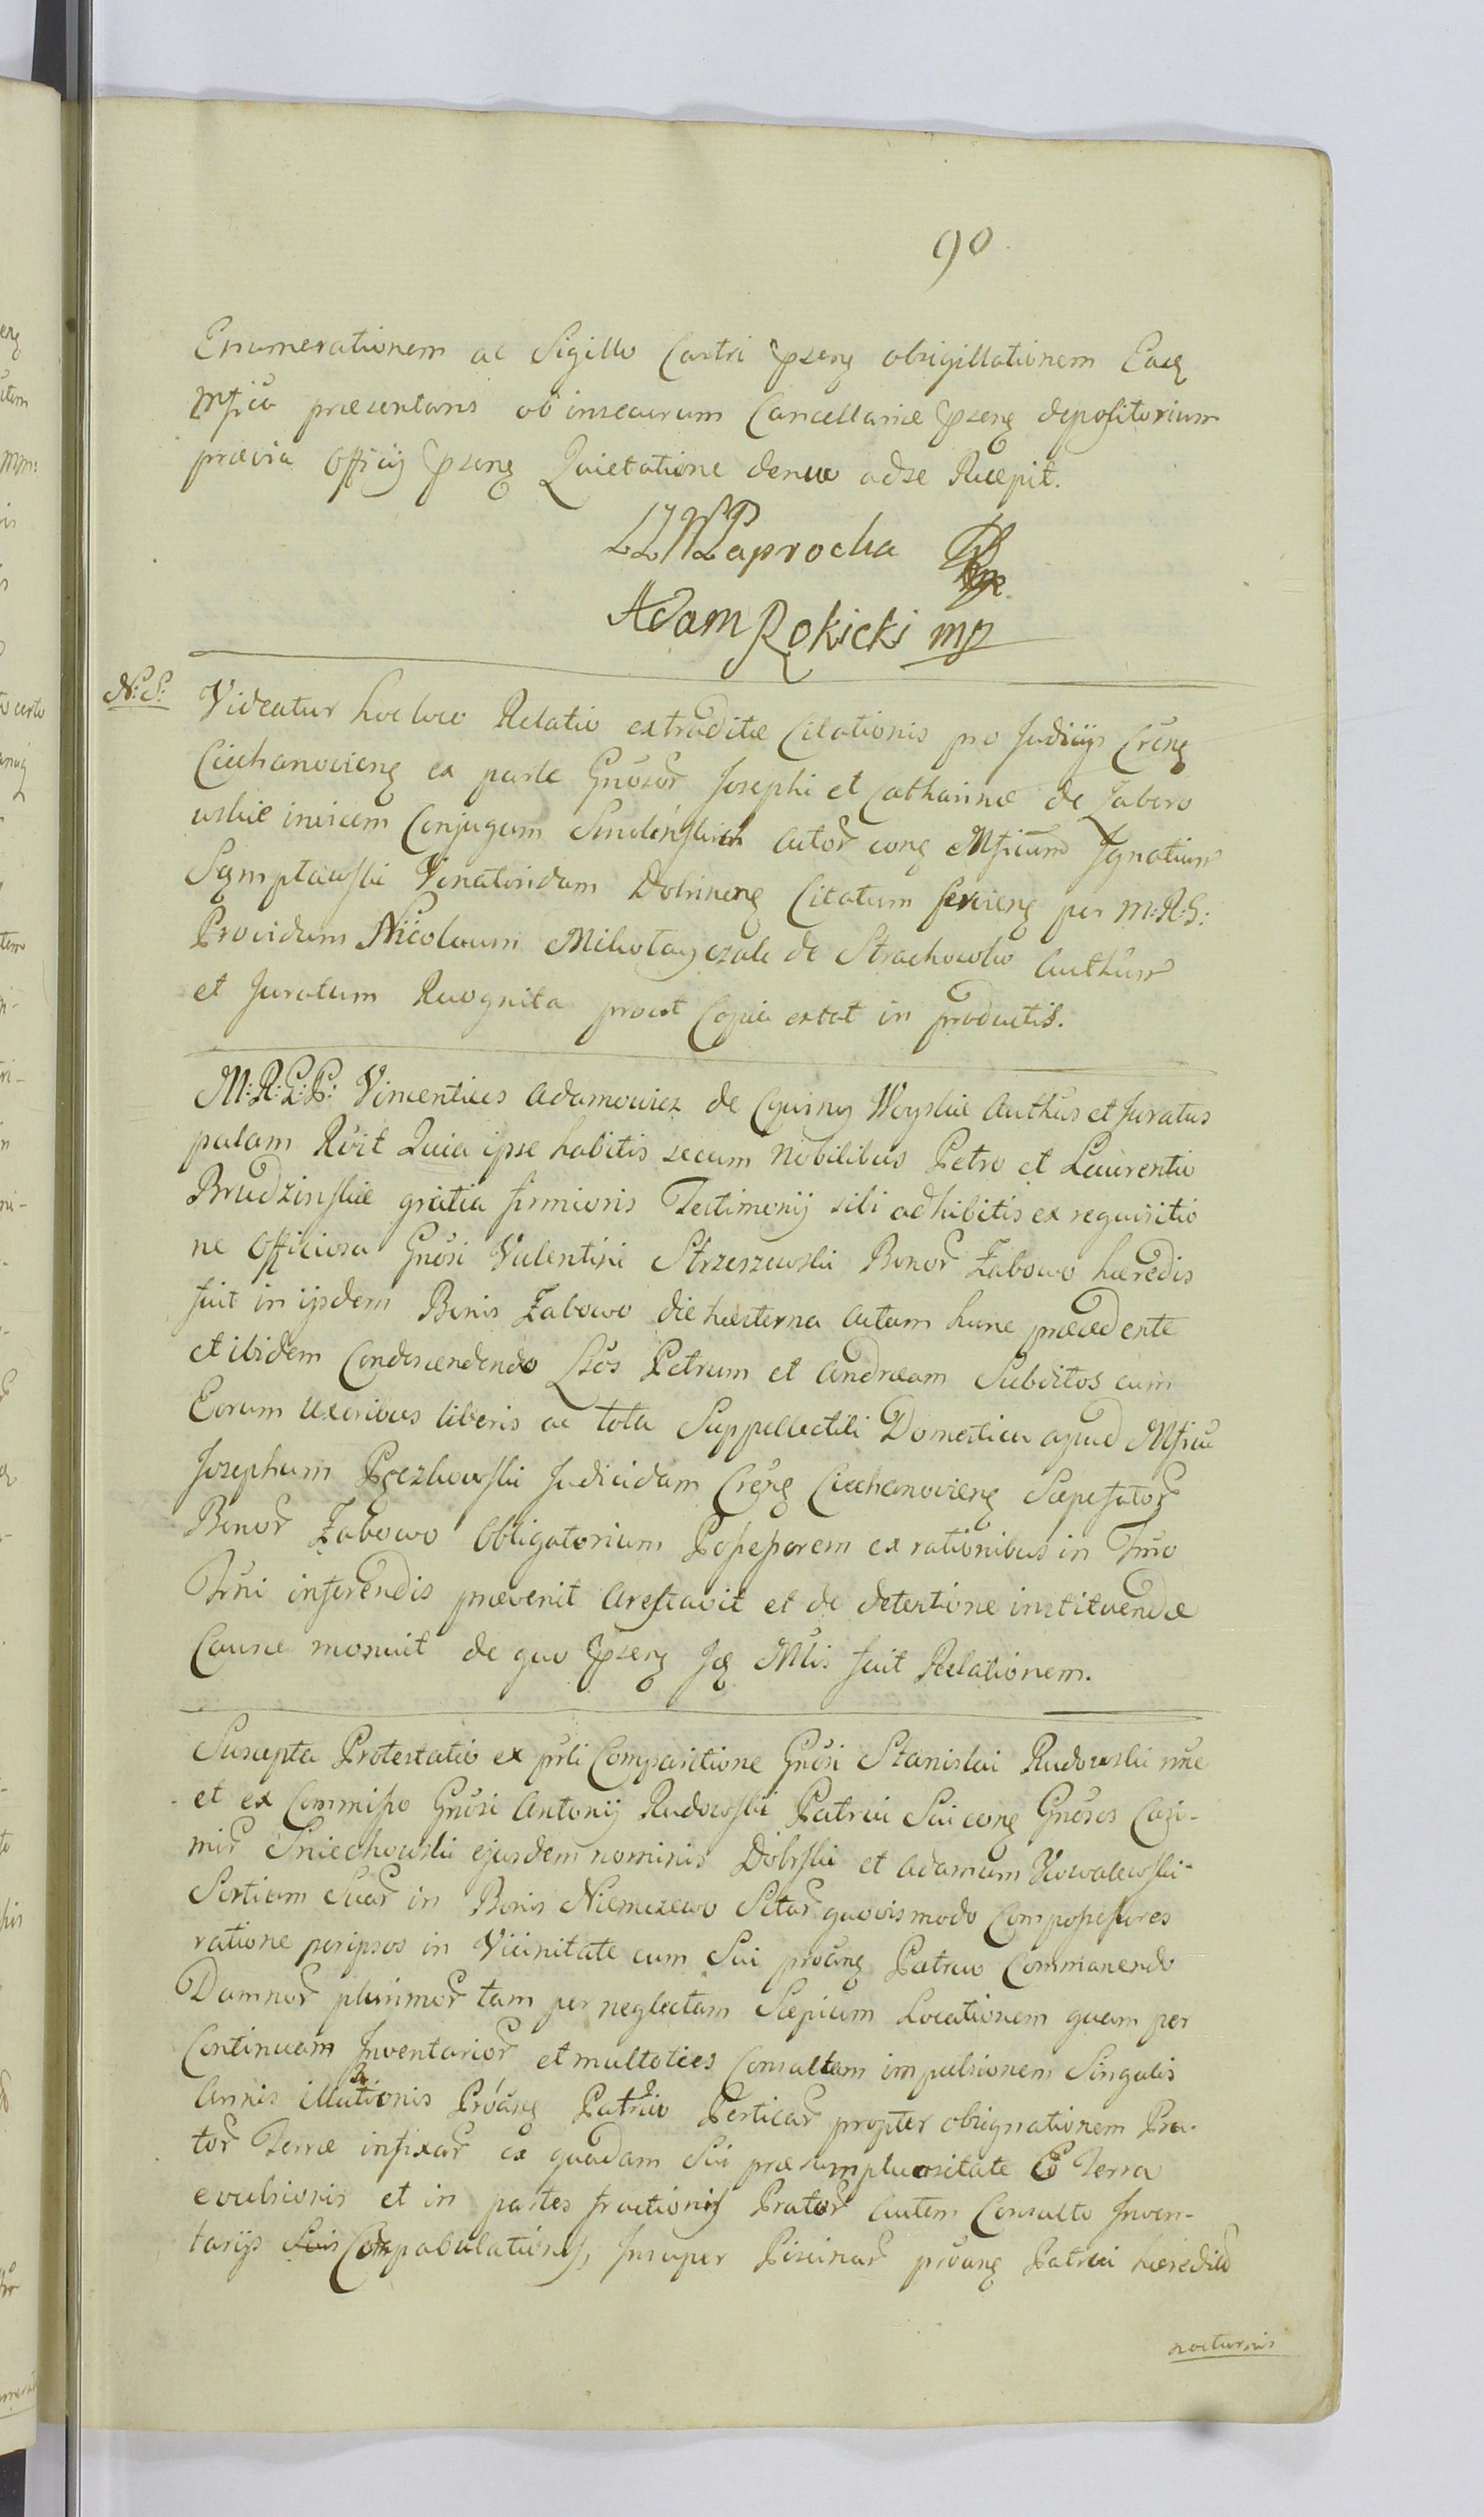 90
Enumerationem ac Sigillo Castri pseng obsigillationem Eadq
Mfica præsentans ob insecurum Cancellariæ pseng depositorium
prævia Officij pseng Quietatione denuo ad se Recepit.
Paprocka
Adam Rokicki mp
N: S: Videatur hoc loco Relatio extraditæ Citationis pro Judicijs Creng
Ciechanovieng ex parte Gnosor Josephi et Catharinæ de Zaboro
wskie invicem Conjugum Smolinskich Actor cong Mficum Ignatium
Sęmpławski Venatoridam Dobrineng Citatum serviens per M: R: G:
Providum Nicolaum Mikołayczak de Strachowko Authum
et Juratum Recognita prout Copia extat in productis.
M: R: G: P: Vincentius Adamowicz de Czerniy Woyskie Authus et Juratus
palam Rvit Quia ipse habitis secum Nobilibus Petro et Laurentio
Brudzinskie gratia firmioris Testimonij sibi adhibitis ex requisitio
ne Officiosa Gnosi Valentini Strzeszewski Bonor Żabowo hæredis
fuit in ijsdem Bonis Żabowo die hesterna actum hunc præcedente
et ibidem Condescendendo Lsos Petrum et Andream Subditos cum
Eorum Uxoribus liberis ac tota Suppellectili Domestica apud Mficu
Josephum Pęczkowski Judicidam Creng Ciechanovieng Sæpefator
Bonor Żabowo Obligatorium Possessorem ex rationibus in Tmo
Trni inferendis prævenit Arestavit et de detentione instituendæ
Causæ monuit de quo pseng Jq Mlis fecit Relationem.
Suscepta Protestatio ex prli Comparitione Gnosi Stanislai Rudowski nne
et ex Commisso Gnosi Antonij Rudowski Patrui Sui cong Gnosos Cazi-
mir Sniechowski ejusdem nominis Dobrski et Adamum Kowalewski
Sortium Suar in Bonis Niemczewo Sitar quovismodo Compossessores
ratione per ipsos in Vicinitate cum Sui prcang Patruo Commanendo
Damnor plurimor tam per neglectam Sæpium Locationem quam per
Continuam Inventarior et multoties Consultam impulsionem Singulis
Annis illationis Prcang Patruo Perticar propter obsignationem Pra-
tor Terræ infixar ex quadam Sui præsumptuositate Eo Terra
evulsionis et in partes fractionis Prator autem Consulto Inven-
tarijs Compabulationis, Insuper Piscinar prcang Patrui hæredita
nocturnis